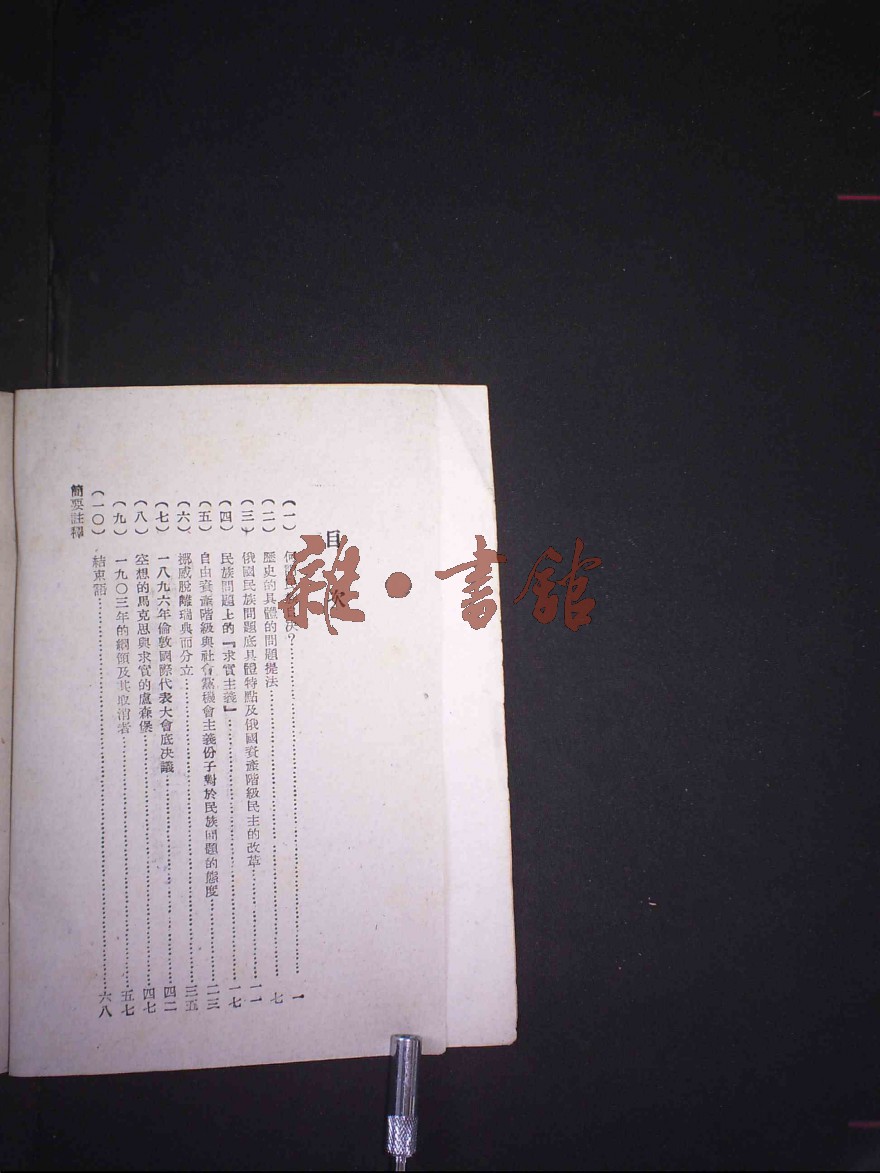 目次
（一） 何謂民族自決？……一
（二） 歷史的具體的問題提法……七
（三） 俄國民族問題底具體特點及俄國資產階級民主的改革……一一
（四） 民族問題上的『求實主義』……一七
（五） 自由資產階級與社會黨機會主義份子對於民族問題的態度……二三
（六） 挪威脫離瑞典而分立……三五
（七） 一八九六年倫敦國際代表大會底決議……四二
（八） 空想的馬克思與求實的盧森堡……四七
（九） 一九〇三年的綱領及其取消者……五七
（一〇） 結束語……六八
簡要註釋
雜·書館